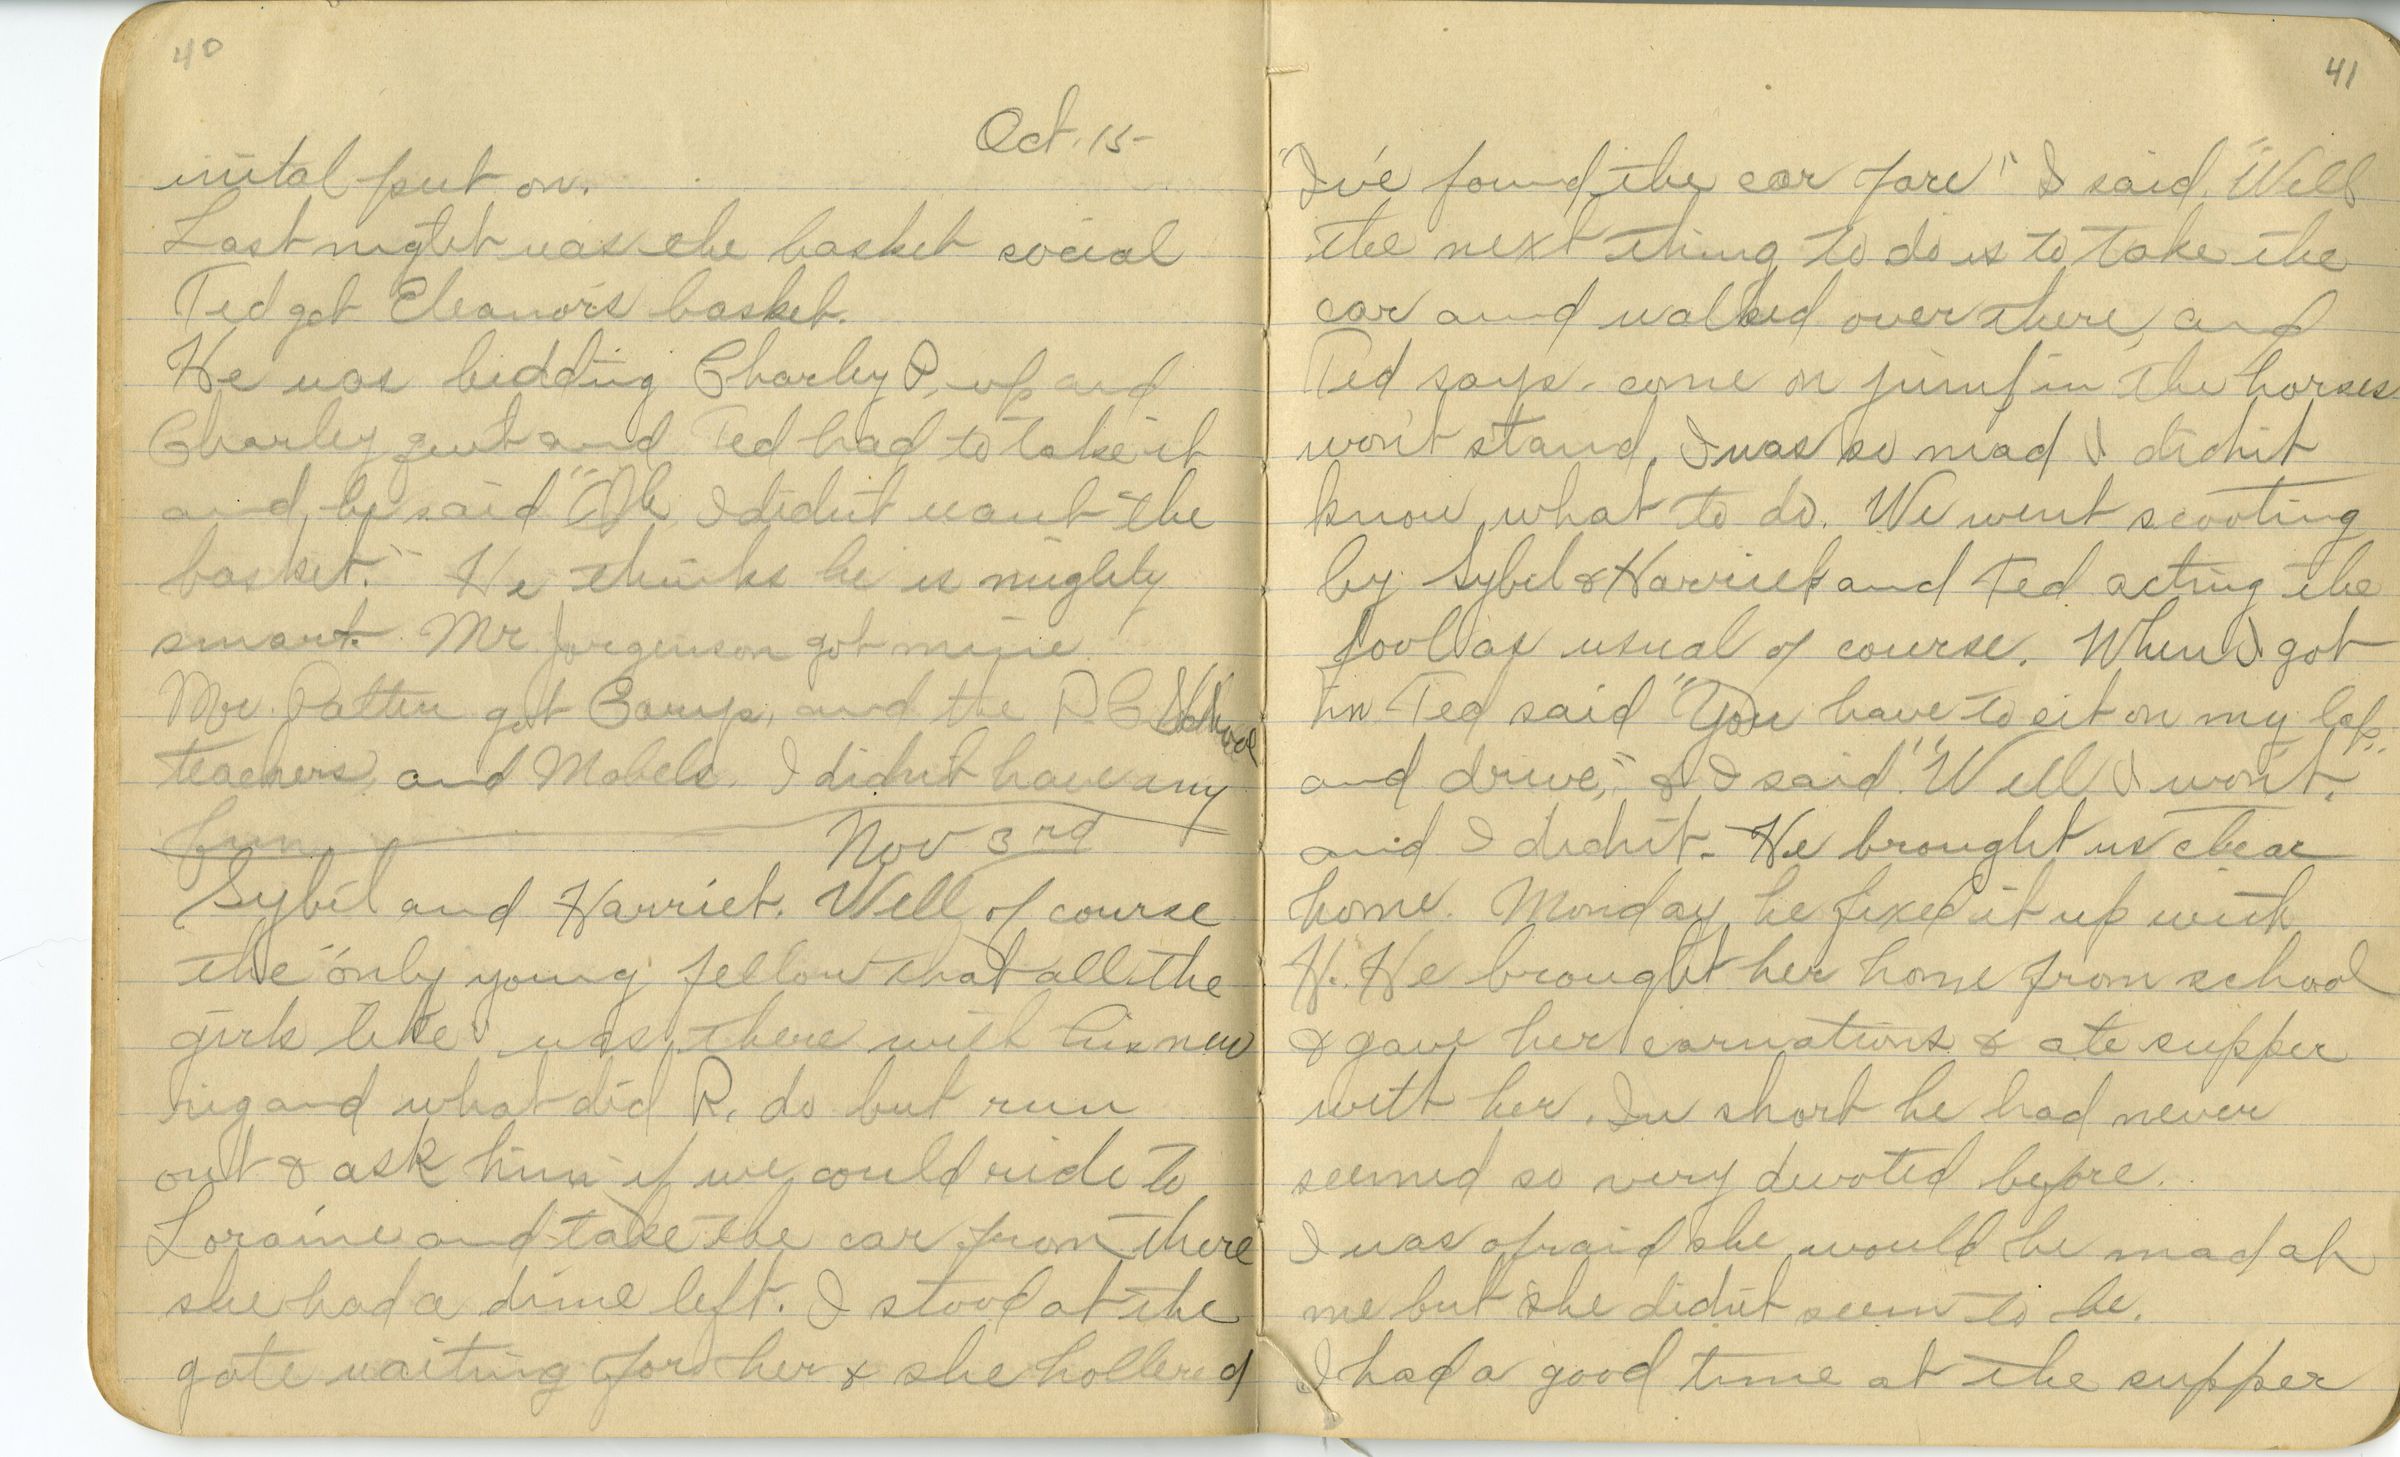 40
Oct. 15-
inital put on.
Last night was the basket social
Ted got Eleanor's basket.
He was bidding Charley P. up and
Charley quit and Ted had to take it
and he said "Oh I didn't want the
basket." He thinks he is mighty
smart. Mr Jorgenson got mine
Mr. Patten got and the R C School
teachers, and Mabels. I didn't have any
fun
Nov 3rd
Sybil and Harriet. Well of course
the "only young fellow that all the
girls like" was there with his new
rig and what did R. do but run
out & ask him if we could ride to
Loraine and take the car from there
she had a dime left. I stood at the
gate waiting for her & she hollered
41
"I've found the car fare" I said, "Well
the next thing to do is to take the
car and walked over there, and
Ted says - come on jump in the horses
won't stand. I was so mad I didn't
know what to do. We went scooting
by Sybil & Harriet and Ted acting the
fool as usual of course. When I got
in Ted said "You have to sit on my lap,
and drive," & I said "Well I won't."
and I didn't. He brought us clear
home. Monday he fixed it up with
H. He brought her home from school
& gave her carnations & ate supper
with her. In short he had never
seemed so very devoted before.
I was afraid she would be mad at
me but she didn't seem to be.
I had a good time at the supper